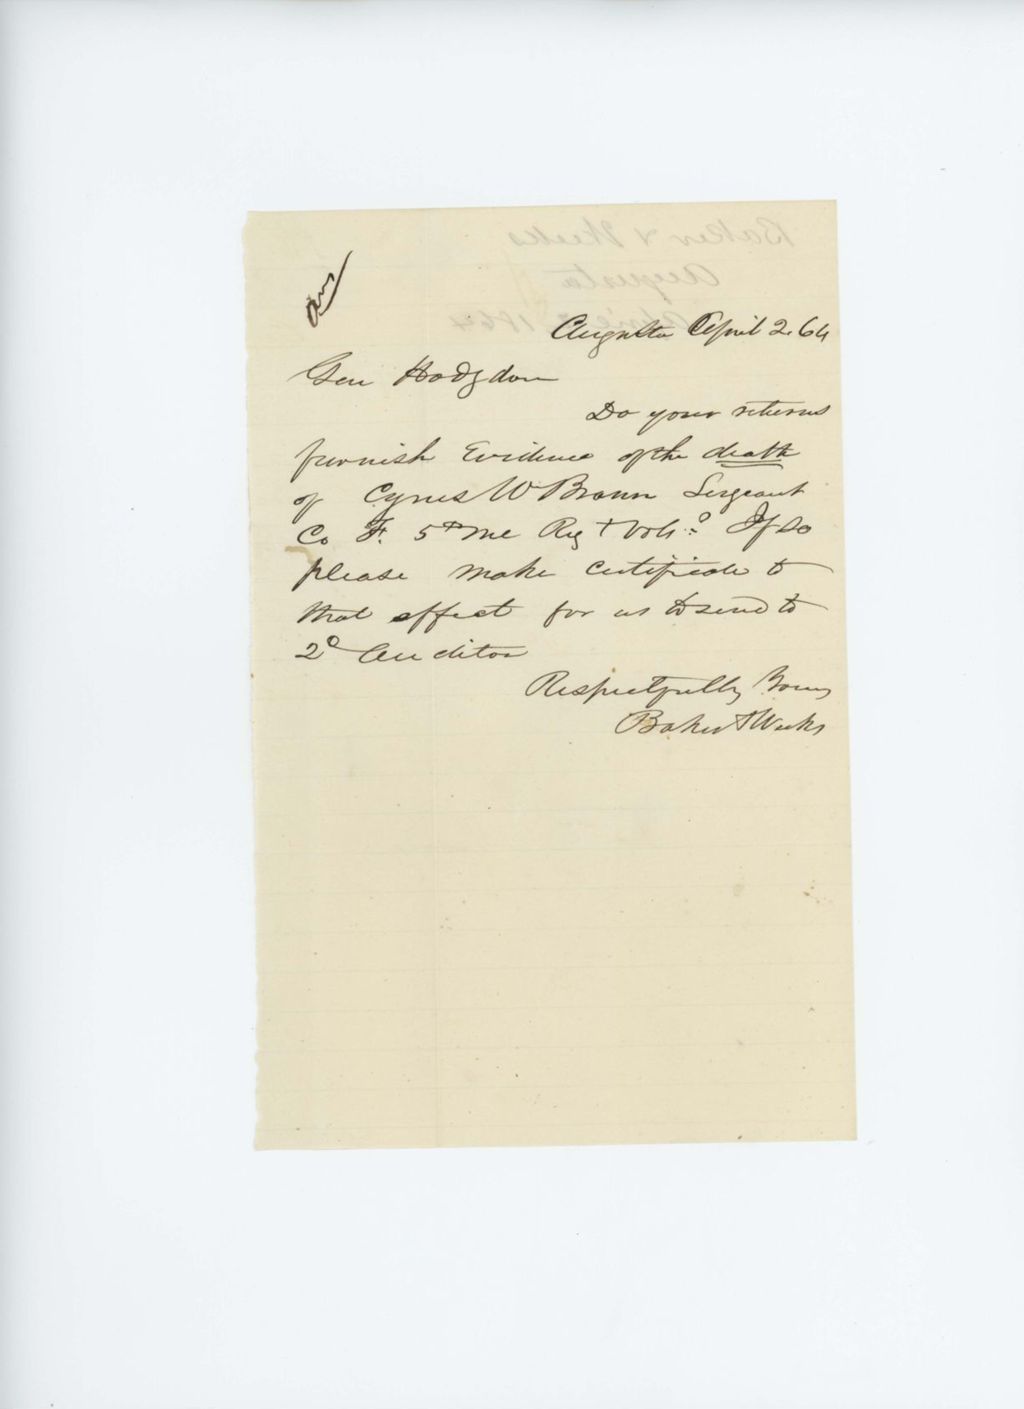 ans
Augusta April 2. 64
Gen Hodgdon
Do your returns
furnish Evidence of the death
of Cyrus W Brown Sergeant
Co F. 5th Me Reg t Vols? If so
please make certificate to
that effect for us to send to
2d Auditor
Respectfully Yours
Baker & Weeks
Baker & Weeks
Augusta
April 2 1864